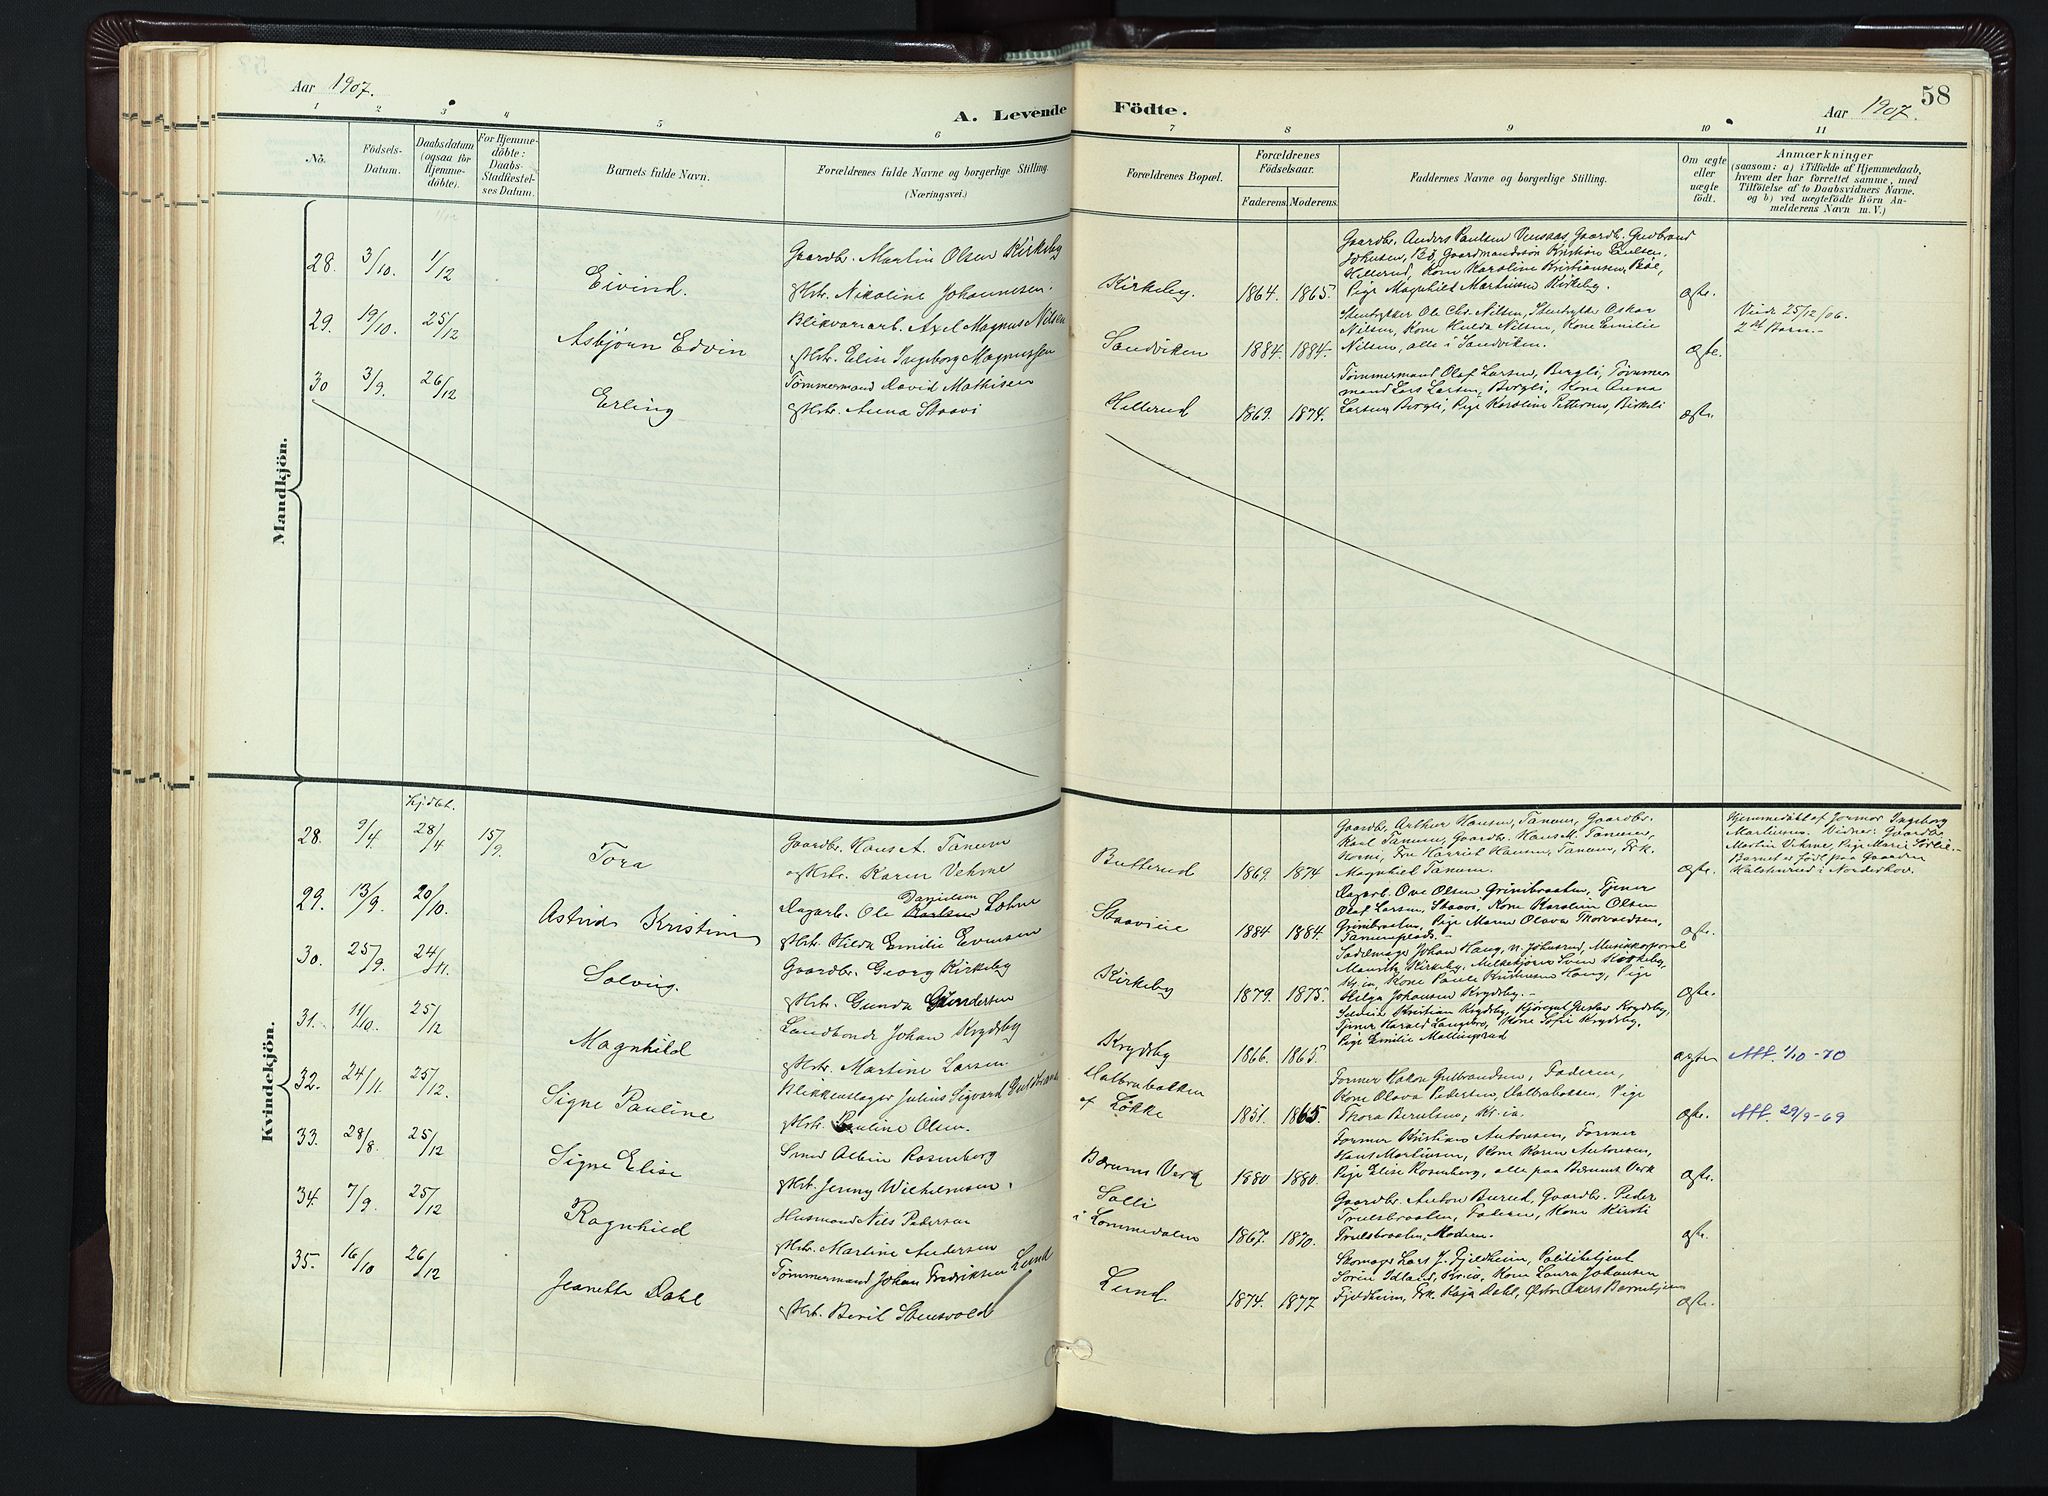 Aar 1907.
A. Levende Födte.
Aar 1907.
58
1 2 3 4 5 6 7 8 9 10 11
No.
Födsels-Datum.
Daabsdatum (ogsaa for Hjemme-döbte).
For Hjemme-döbte: Daabs-Stadfæstel-ses Datum.
Barnets fulde Navn.
Forældrenes fulde Navne og borgerlige Stilling.
(Næringsvei.)
Forældrenes Bopæl.
Forældrenes Födselsaar.
Faderens. Moderens.
Faddernes Navne og borgerlige Stilling.
Om ægte eller uægte født.
Anmærkninger
(saasom: a) i Tilfælde af Hjemmedaab,
hvem der har forrettet samme, med
Tilföielse af to Daabsvidners Navne.
og b) ved uægtefödte Börn An-
melderens Navn m. V.)
Mandkjön.
28. 3/10. 1/12 Eivind.
Gaardbr. Martin Olsen Kirkeby
og Hstr. Nikoline Johannesen.
Kirkeby. 1864. 1865.
Gaardbr. Anders Paulsen Gaardbr. Gudbrand
Johnsen, Bö, Gaardmandssön Kristian Paulsen,
Hellerud, Kone Karoline Kristiansen,
Pige Magnhild Martinsen Kirkeby.
ægte.
29. 19/10. 25/12 Asbjörn Edvin
Blikvarearb. Axel Magnus Nilsen
og Hstr. Elise Ingeborg Magnussen
Sandviken 1884. 1884.
Stenhykker Ole Chr. Nilsen, Stenhykker Oskar
Nilsen, Kone Hulda Nilsen, Kone Emilie
Nilsen, alle i Sandviken.
ægte.
Viede 25/12/06.
2det Barn.-
30 3/9. 26/12 Erling
Tømmermand David Mathisen
og Hstr. Anna Staavi
Hellerud 1869. 1874.
Tømmermand Olaf Larsen, Bergli, Tømmer
mand Lars Larsen, Bergli, Kone Anna
Larsen, Bergli, Pige Karoline Pettersen, Birkeli
ægte.
Kvindekjön.
hj.dbt.
28. 9/4. 28/4 15/9. Tora
Gaardbr. Hans A. Tanum
og Hstr. Karen Vehme
Butterud 1869. 1874
Gaardbr. Arthur Hansen, Tanum, Gaardbr.
Karl Tanum, Gaardbr. Hans M. Tanum,
Horni, Fru Harriet Hansen, Tanum, Frk.
Magnhild Tanum.
ægte.
Hjemmedöbt af Jormor Ingeborg
Martinsen. Vidner: Gaardbr.
Martin Vehme, Pige Marie Sørlie.-
Barnet er født paa Gaarden
Halstenrud i Norderhov.
29. 13/9. 20/10. Astrid Kristine
Danielsen
Dagarb. Ole Karlsen Lohne
og Hstr. Hilda Emilie Evensen
Staaviie 1884. 1884.
Dagarb. Ove Olsen Grinibraaten, Tjener
Olaf Larsen, Staavi, Kone Karoline Olsen
Grinibraaten, Pige Maren Olava Thorvaldsen,
Tanumplads.-
ægte.
30. 25/9. 24/11. Solveig.
Gaardbr. Georg Kirkeby
og Hstr. Gunda Gundersen
Kirkeby 1879. 1875.
Sadelmager Johan Haug, n. Jóhnsrud, Musikkorporal
Mauritz Kirkeby, Melkekjører Sven Kirkeby,
Kr.ia, Kone Paule Knutsen Haug, Pige
Helga Johansen Krydsby.-
ægte.
31. 11/10. 25/12 Magnhild
Landbonde Johan Krydsby
og Hstr. Martine Larsen.
Krydsby 1866. 1865.
Selveier Kristian Krydsby, Kjøregut Gustav Krydsby,
Tjener Harald Langebro, Kone Sofie Krydsby,
Pige Emilie Mallingsrud
ægte
Att. 1/10-70
32. 24/11. 25/12. Signe Pauline
Blikkenslager Julius Sigvard Guldbransen
og Hstr. Pauline Olsen.
Dalbrubakken
af Løkke 1851. 1865.
Former Hakon Gulbrandsen, Faderen,
Kone Olava Pedersen, Dalbrubakken, Pige
Thora Berulsen, Kr.ia.
ægte.
Att. 29/9-69
33. 28/8. 25/12 Signe Elise
Smed Albin Rosenberg
og Hstr. Jenny Wilhelmsen.
Bærums Verk 1880 1880.
Former Kristian Antonsen, Former
Hans Martinsen, Kone Karen Antonsen,
Pige Elise Rosenberg, alle paa Bærums Verk
ægte.
34. 7/9. 25/12 Ragnhild
Husmand Nils Pedersen
og Hstr. Martine Andersen
Solli
i Lommedalen 1867. 1870.
Gaardbr. Anton Burud, Gaardbr. Peder
Trulsbraaten, Faderen, Kone Kirsti
Trulsbraaten, Moderen.
ægte.
35. 16/10 26/12 Jeanette Dahl
Tømmermand Johan Fredriksen Lund
og Hstr. Beril Stensvold
Lund. 1874. 1877
Skomager Lars J. Fjeldheim, Politibetjent
Sören Idland, Kr.ia, Kone Laura Johansen
Fjeldheim, Frk. Kaja Dahl, Østre Akers Barnehjem
ægte.